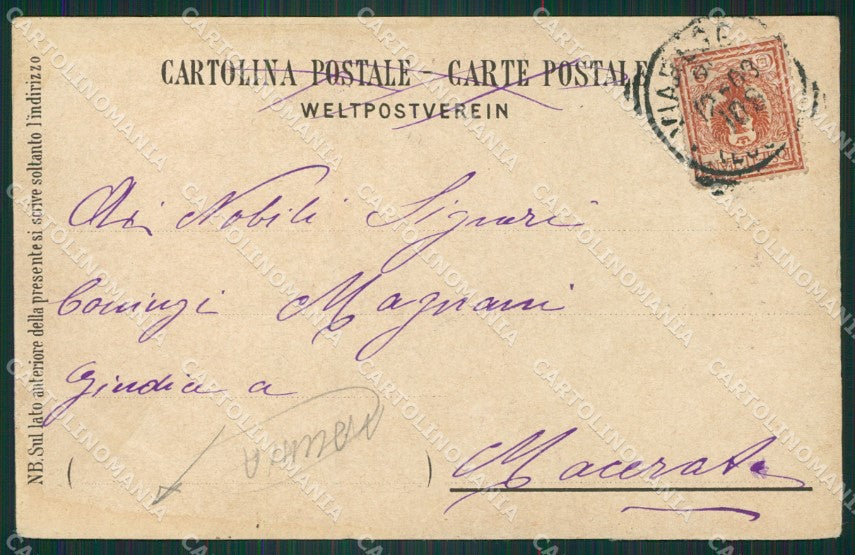 CARTOLINA POSTALE - CARTE POSTALE
WELTPOSTVEREIN
NB. Sul lato anteriore della presente si scrive soltanto l'indirizzo
Ai Nobili Signori
Coniugi Magnani
Giudice a
Macerata
CARTOLINOMANIA